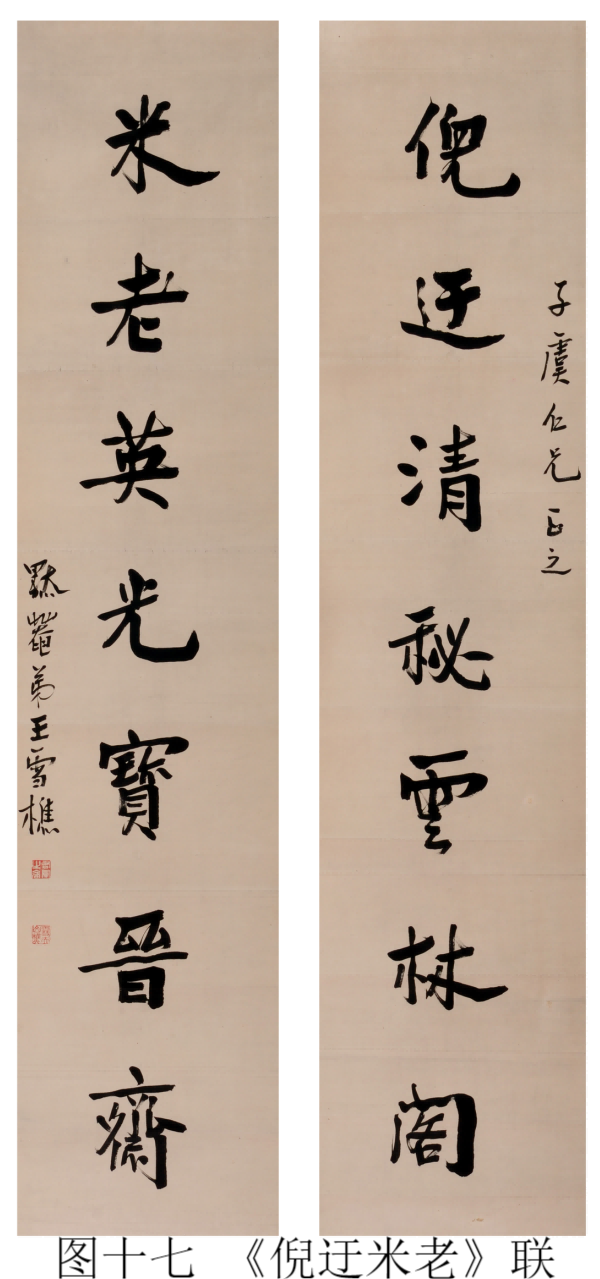 子虞仁兄正之
倪迂清秘雲林閣
米老英光寶晉齋
黟菴弟王雪樵
图十七 《倪迂米老》联